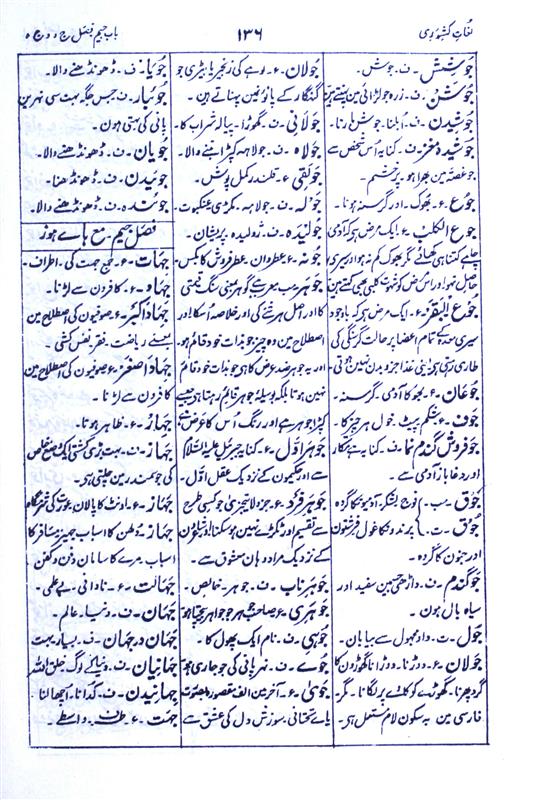 لغات کشوری
۱۳۶
باب جیم فصل ج و و ج ہ
جوشش ۔ ف ۔ جوش ۔
جوشن ۔ ف ۔ زرہ جو لڑائی مین پہنتے ہین
جوشیدن ۔ ف ۔ اُبلنا ۔ جوش مارنا ۔
جوشیدہ مغز ۔ ف ۔ کنایہ اُس شخص سے
جو غصہ مین بھرا ہو ۔ پرخشم ۔
جوع ۔ ع ۔ بھوک ۔ اور گرسنہ ہونا ۔
جوع الکلب ۔ ع ۔ ایک مرض ہے کہ آدمی
چاہے کتنا ہی کھائے مگر بھوک کم نہ ہو اور سیری
حاصل نہو اور اس مرض کو شہوت کلبی بھی کہتے ہین
جوع البقر ۔ ع ۔ ایک مرض ہے کہ باوجود
سیری معدے کے تمام اعضا پر حالت گرسنگی کی
طاری رہتی ہے یعنی غذا جزو بدن نہین ہوتی
جوعان ۔ ع ۔ بھوکا آدمی ۔ گرسنہ ۔
جوف ۔ ع ۔ شکم ۔ پیٹ ۔ خول ہر چیز کا ۔
جوفروش گندم نما ۔ ف ۔ کنایہ ہے مکار
اور دغاباز آدمی سے ۔
جوق ۔ ب ۔ فوج لشکر ۔ آدمیونکا گروہ
جوق ۔ ت ۔ پرندونکا غول فرشتون
اور جنون کا گروہ ۔
جوگندم ۔ ف ۔ داڑھی جسمین سفید اور
سیاہ بال ہون ۔
جول ۔ ت ۔ واو مجہول سے بیابان ۔
جولان ۔ ع ۔ دوڑنا ۔ دوڑانا گھوڑون کا
گرد پھرنا ۔ گھوڑے کو کاوے پر لگانا ۔ مگر
فارسی مین بہ سکون لام مستعمل ہے ۔
جولان ۔ ع ۔ لوہے کی زنجیر یا بیڑی جو
گنہگار کے پانؤن مین پہناتے ہین ۔
جولانی ۔ ف ۔ گھوڑا ۔ پیالہ شراب کا ۔
جولاہ ۔ ف ۔ جولاہہ کپڑا بننے والا ۔
جولقی ۔ ع ۔ قلندر کمل پوش ۔
جولہ ۔ ف ۔ جولاہہ ۔ مکڑی عنکبوت ۔
جولیدہ ۔ ف ۔ ژولیدہ ۔ پریشان ۔
جونہ ۔ ع ۔ عطردان ۔ عطر فروش کا بکس ۔
جوہر ۔ معرب ہے گوہر یعنی سنگ قیمتی
کا اور اصل ہر شے کی اور خلاصہ اُسکا اور
اصطلاح مین وہ چیز جو بذات خود قائم ہو ۔
اور یہ جوہر ضد عرض کا ہے جو بذات خود قائم
نہین ہوتا بلکہ بوسیلہ جوہر قائم رہتا ہے جیسے
کپڑا جوہر ہے اور رنگ اُس کا عرض ہے
جوہر اوّل ۔ ع ۔ کنایہ جبرئیل علیہ السلام
سے اور حکیمون کے نزدیک عقل اوّل ۔
جوہر فرد ۔ ع ۔ جزو لایتجزی جو کسی طرح
سے تقسیم اور ٹکڑے نہین ہو سکتا اور شاعرون
کے نزدیک مراد دہان معشوق سے ۔
جوہر ناب ۔ ف ۔ جوہر خالص ۔
جوہری ۔ ع ۔ صاحب جوہر جو جواہر بیچتا ہو
جوہی ۔ ف ۔ نام ایک پھول کا ۔
جوے ۔ ف ۔ نہر پانی کی جو جاری ہو
جویٰ ۔ ع ۔ آخر مین الف مقصورہ بصورت
یاے تحتانی ۔ سوزش دل کی عشق سے
جویا ۔ ف ۔ ڈھونڈھنے والا ۔
جوئبار ۔ ف ۔ جس جگہ بہت سی نہرین
پانی کی بہتی ہون ۔
جویان ۔ ف ۔ ڈھونڈھنے والا ۔
جوئیدن ۔ ف ۔ ڈھونڈھنا ۔
جوئندہ ۔ ف ۔ ڈھونڈھنے والا ۔
فصل جیم ۔ مع ہاے ہوز
جہات ۔ ع ۔ جمع جہت کی ۔ اطراف ۔
جہاد ۔ ع ۔ کافرون سے لڑنا ۔
جہاد اکبر ۔ ع ۔ صوفیون کی اصطلاح مین
بمعنے ریاضت ۔ فقر نفس کشی ۔
جہاد اصغر ۔ ع ۔ صوفیون کی اصطلاح مین
کافرون سے لڑنا ۔
جہار ۔ ع ۔ ظاہر ہونا ۔
جہاز ۔ ف ۔ بہت بڑی کشتی ایک وضع خاص
کی جو سمندر مین چلتی ہے ۔
جہاز ۔ ع ۔ اونٹ کا پالان عورت کی شرمگاہ
جہاز ۔ ع ۔ دلھن کا اسباب جہیز مسافر کا
اسباب ۔ مردے کا سامان دفن و کفن ۔
جہالت ۔ ع ۔ نادانی ۔ بے علمی ۔
جہان ۔ ف ۔ دنیا ۔ عالم ۔
جہان در جہان ۔ ف ۔ بسیار بہت
جہانیان ۔ ف ۔ دنیا کے لوگ خلق اللہ
جہانیدن ۔ ف ۔ کدانا ۔ اُچھالنا
جہت ۔ ع ۔ طرف ۔ واسطے ۔